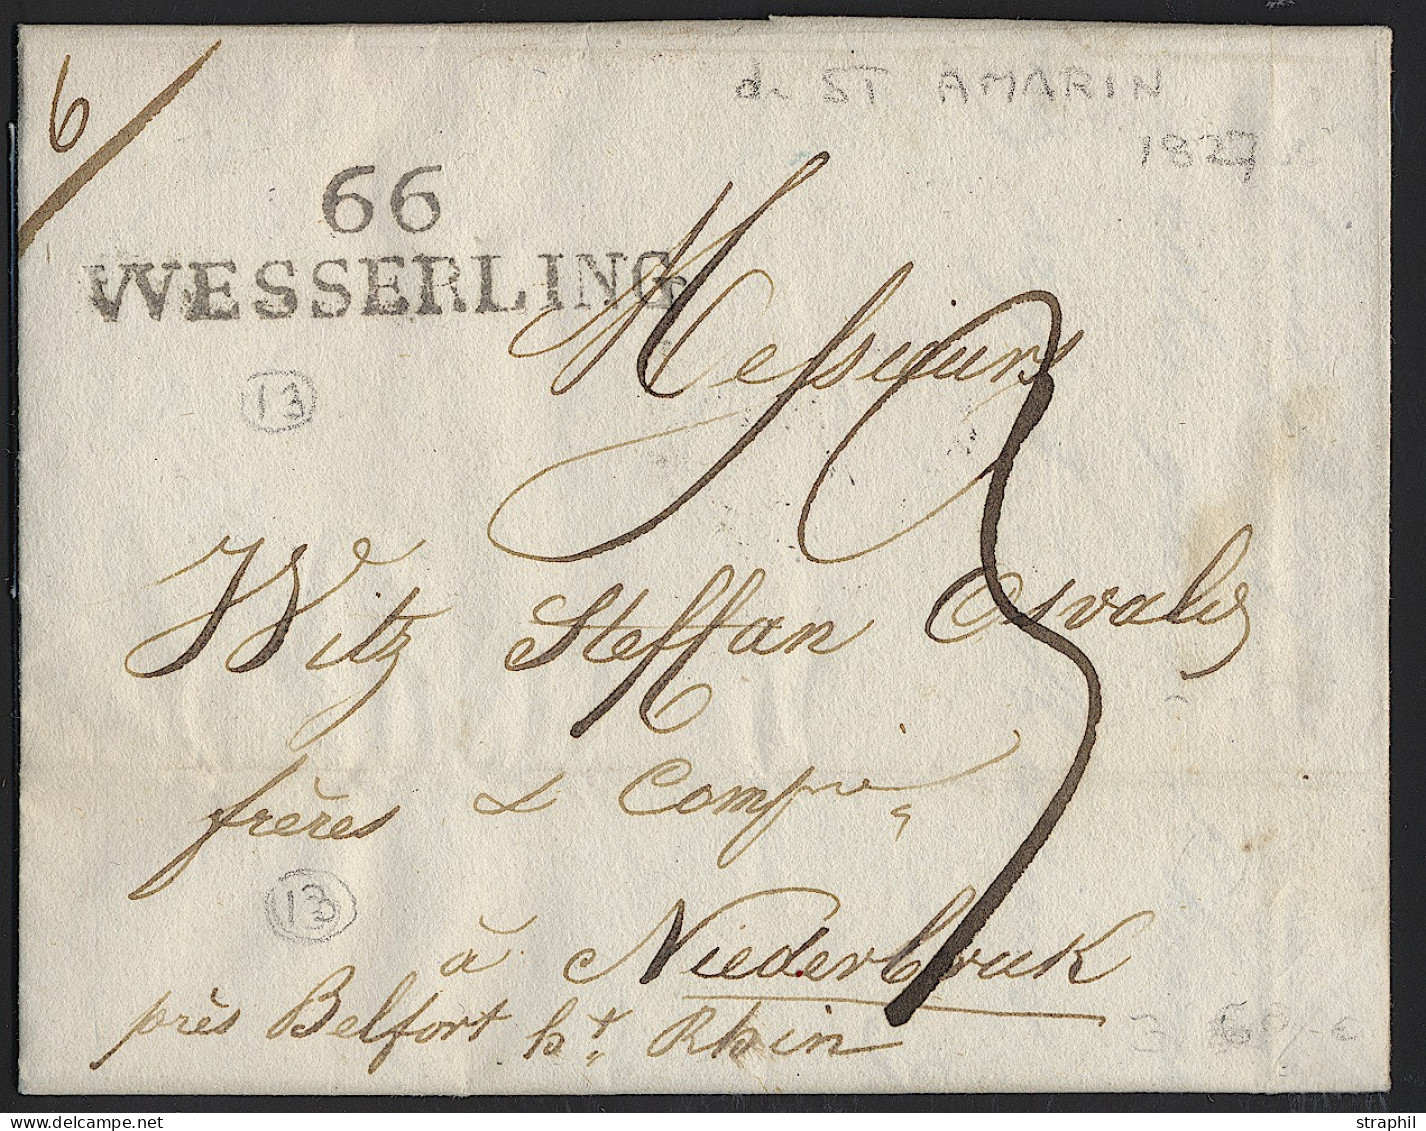 6
de ST AMARIN
1827
66
WESSERLING
13
Messieurs
3
Witz Steffan Osvald
frères & Compie
13
à Niederbruk
près Belfort ht. Rhin
straphil